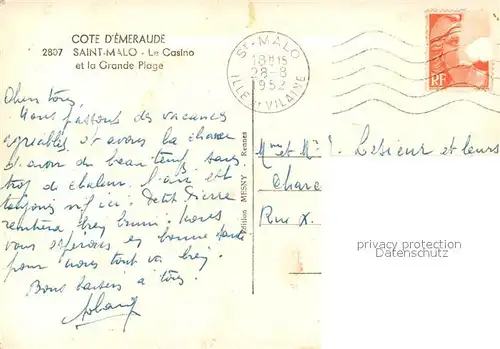 COTE D'ÉMERAUDE
2807 SAINT-MALO - Le Casino
et la Grande Plage
St-MALO
18H15
28-8
1952
ILLE et VILAINE
RF
Chers tous,
Nous passons des vacances
agréables et avons la chance
d'avoir du beau temps sans
trop de chaleur. L'air est
toujours vif ici. Petit Pierre
rentrera bien bruni. Nous
vous espérons en bonne santé
pour nous tout va bien.
Bons baisers à tous
Edition MESNY Rennes
Mme et Mr Lesieur et leurs
Charc
Rue X.
privacy protection
Datenschutz